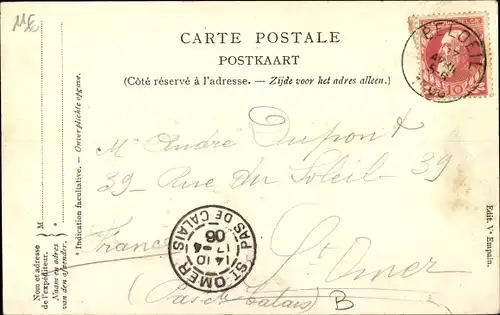 CARTE POSTALE
POSTKAART
(Côté réservé à l'adresse. — Zijde voor het adres alleen.)
Mr André Dupont &
39 — Rue du Soleil — 39
St Omer
(France)
(Pas de Calais)
B
ST OMER
PAS DE CALAIS
14 10
17 - 4
06
BELOEIL
10
Edit. Ve Empain.
* Indication facultative. — Onverplichte opgave.
M
*
Nom et adresse
de l'expéditeur.
Naam en adres
van den afzender.